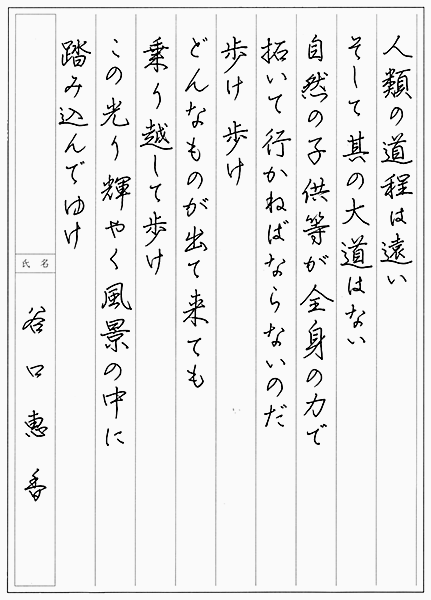 人類の道程は遠い
そして其の大道はない
自然の子供等が全身の力で
拓いて行かねばならないのだ
歩け歩け
どんなものが出て来ても
乗り越して歩け
この光り輝やく風景の中に
踏み込んでゆけ
氏名
谷口恵香